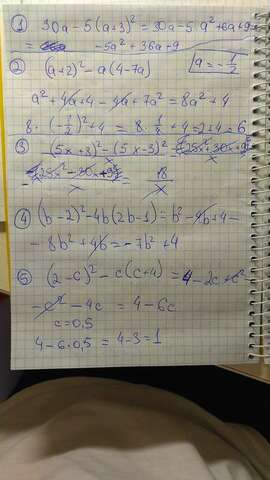 ① 30a - 5(a+3)² = 30a - 5 a² + 6a + 9
= -5a² + 36a + 9
② (a+2)² - a(4-7a) a = -1/2
a² + 4a + 4 - 4a + 7a² = 8a² + 4
8 · (-1/2)² + 4 = 8 · 1/4 + 4 = 2 + 4 = 6
③ (5x+3)² - (5x-3)² = (25x² + 30x + 9)
- (25x² - 30x + 9) 18
x x
④ (b-2)² - 4b(2b-1) = b² - 4b + 4 -
- 8b² + 4b = -7b² + 4
⑤ (2-c)² - c(c+4) = 4 - 2c + c² -
- c² - 4c = 4 - 6c
c = 0,5
4 - 6·0,5 = 4 - 3 = 1